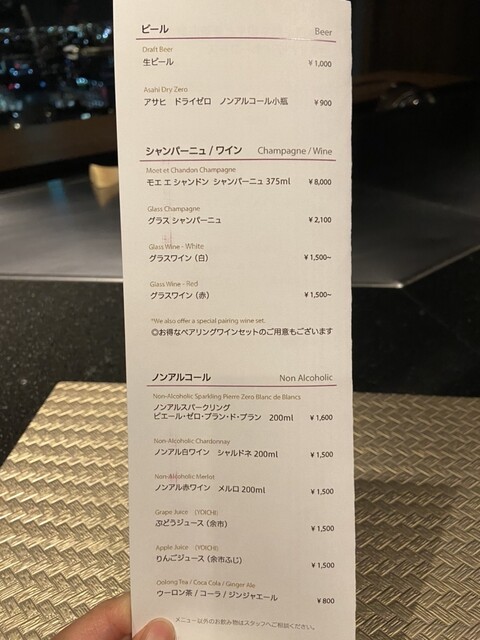 ビール Beer
Draft Beer
生ビール ￥1,000
Asahi Dry Zero
アサヒ ドライゼロ ノンアルコール小瓶 ￥900
シャンパーニュ / ワイン Champagne / Wine
Moet et Chandon Champagne
モエ エ シャンドン シャンパーニュ 375ml ￥8,000
Glass Champagne
グラス シャンパーニュ ￥2,100
Glass Wine - White
グラスワイン（白） ￥1,500~
Glass Wine - Red
グラスワイン（赤） ￥1,500~
*We also offer a special pairing wine set.
◎お得なペアリングワインセットのご用意もございます
ノンアルコール Non Alcoholic
Non-Alcoholic Sparkling Pierre Zero Blanc de Blancs
ノンアルスパークリング
ピエール・ゼロ・ブラン・ド・ブラン 200ml ￥1,600
Non-Alcoholic Chardonnay
ノンアル白ワイン シャルドネ 200ml ￥1,500
Non-Alcoholic Merlot
ノンアル赤ワイン メルロ 200ml ￥1,500
Grape Juice （YOICHI）
ぶどうジュース（余市） ￥1,500
Apple Juice （YOICHI）
りんごジュース（余市ふじ） ￥1,500
Oolong Tea / Coca Cola / Ginger Ale
ウーロン茶 / コーラ / ジンジャエール ￥800
メニュー以外のお飲み物はスタッフへご相談ください。